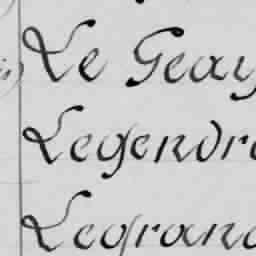 Le Geay
Legendre
Legrand